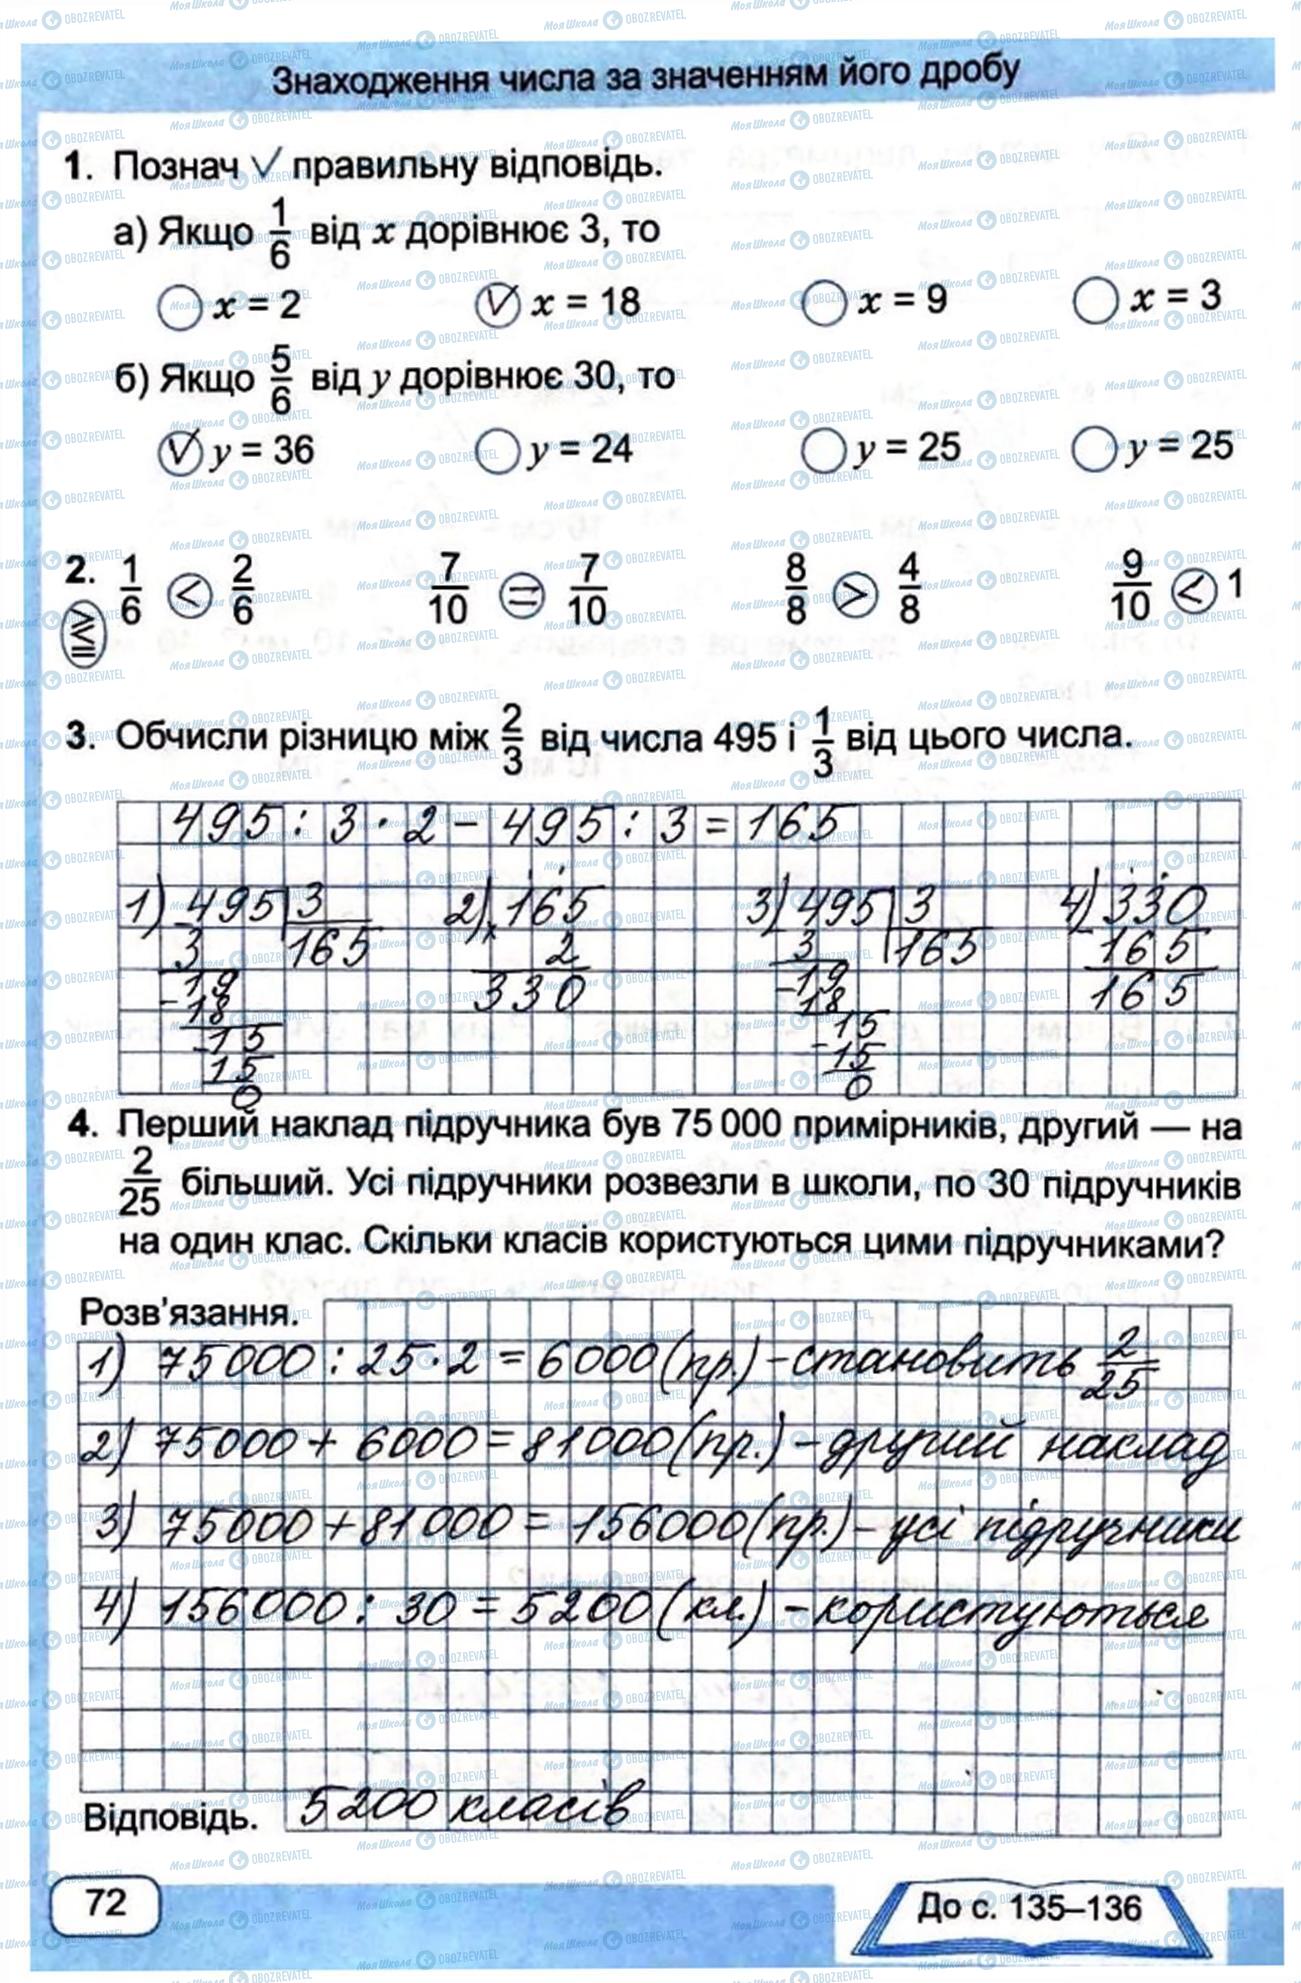 Знаходження числа за значенням його дробу
1. Познач √ правильну відповідь.
а) Якщо 1/6 від x дорівнює 3, то
x = 2 √ x = 18 x = 9 x = 3
б) Якщо 5/6 від y дорівнює 30, то
√ y = 36 y = 24 y = 25 y = 25
2. 1/6 < 2/6 7/10 = 7/10 8/8 > 4/8 9/10 < 1
> < =
3. Обчисли різницю між 2/3 від числа 495 і 1/3 від цього числа.
495 : 3 · 2 - 495 : 3 = 165
1) 495 3 2) 165 3) 495 3 4) 330
3 165 × 2 3 165 - 165
-19 330 -19 165
18 18
-15 -15
15 15
0 0
4. Перший наклад підручника був 75 000 примірників, другий — на
2/25 більший. Усі підручники розвезли в школи, по 30 підручників
на один клас. Скільки класів користуються цими підручниками?
Розв'язання.
1) 75000 : 25 · 2 = 6000 (пр.) - становить 2/25
2) 75000 + 6000 = 81000 (пр.) - другий наклад
3) 75000 + 81000 = 156000 (пр.) - усі підручники
4) 156000 : 30 = 5200 (кл.) - користуються
Відповідь. 5200 класів
72
До с. 135–136
МояШкола OBOZREVATEL